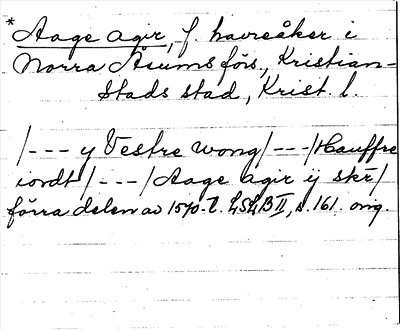 * Aage agir, f. havreåker i
Norra Åsums förs., Kristian-
stads stad, Krist. l.
/--- y Vestre wong/---/Hauffre
iordt/---/Aage agir ij skr/
förra delen av 1570-t. LSLB II, s. 161. orig.